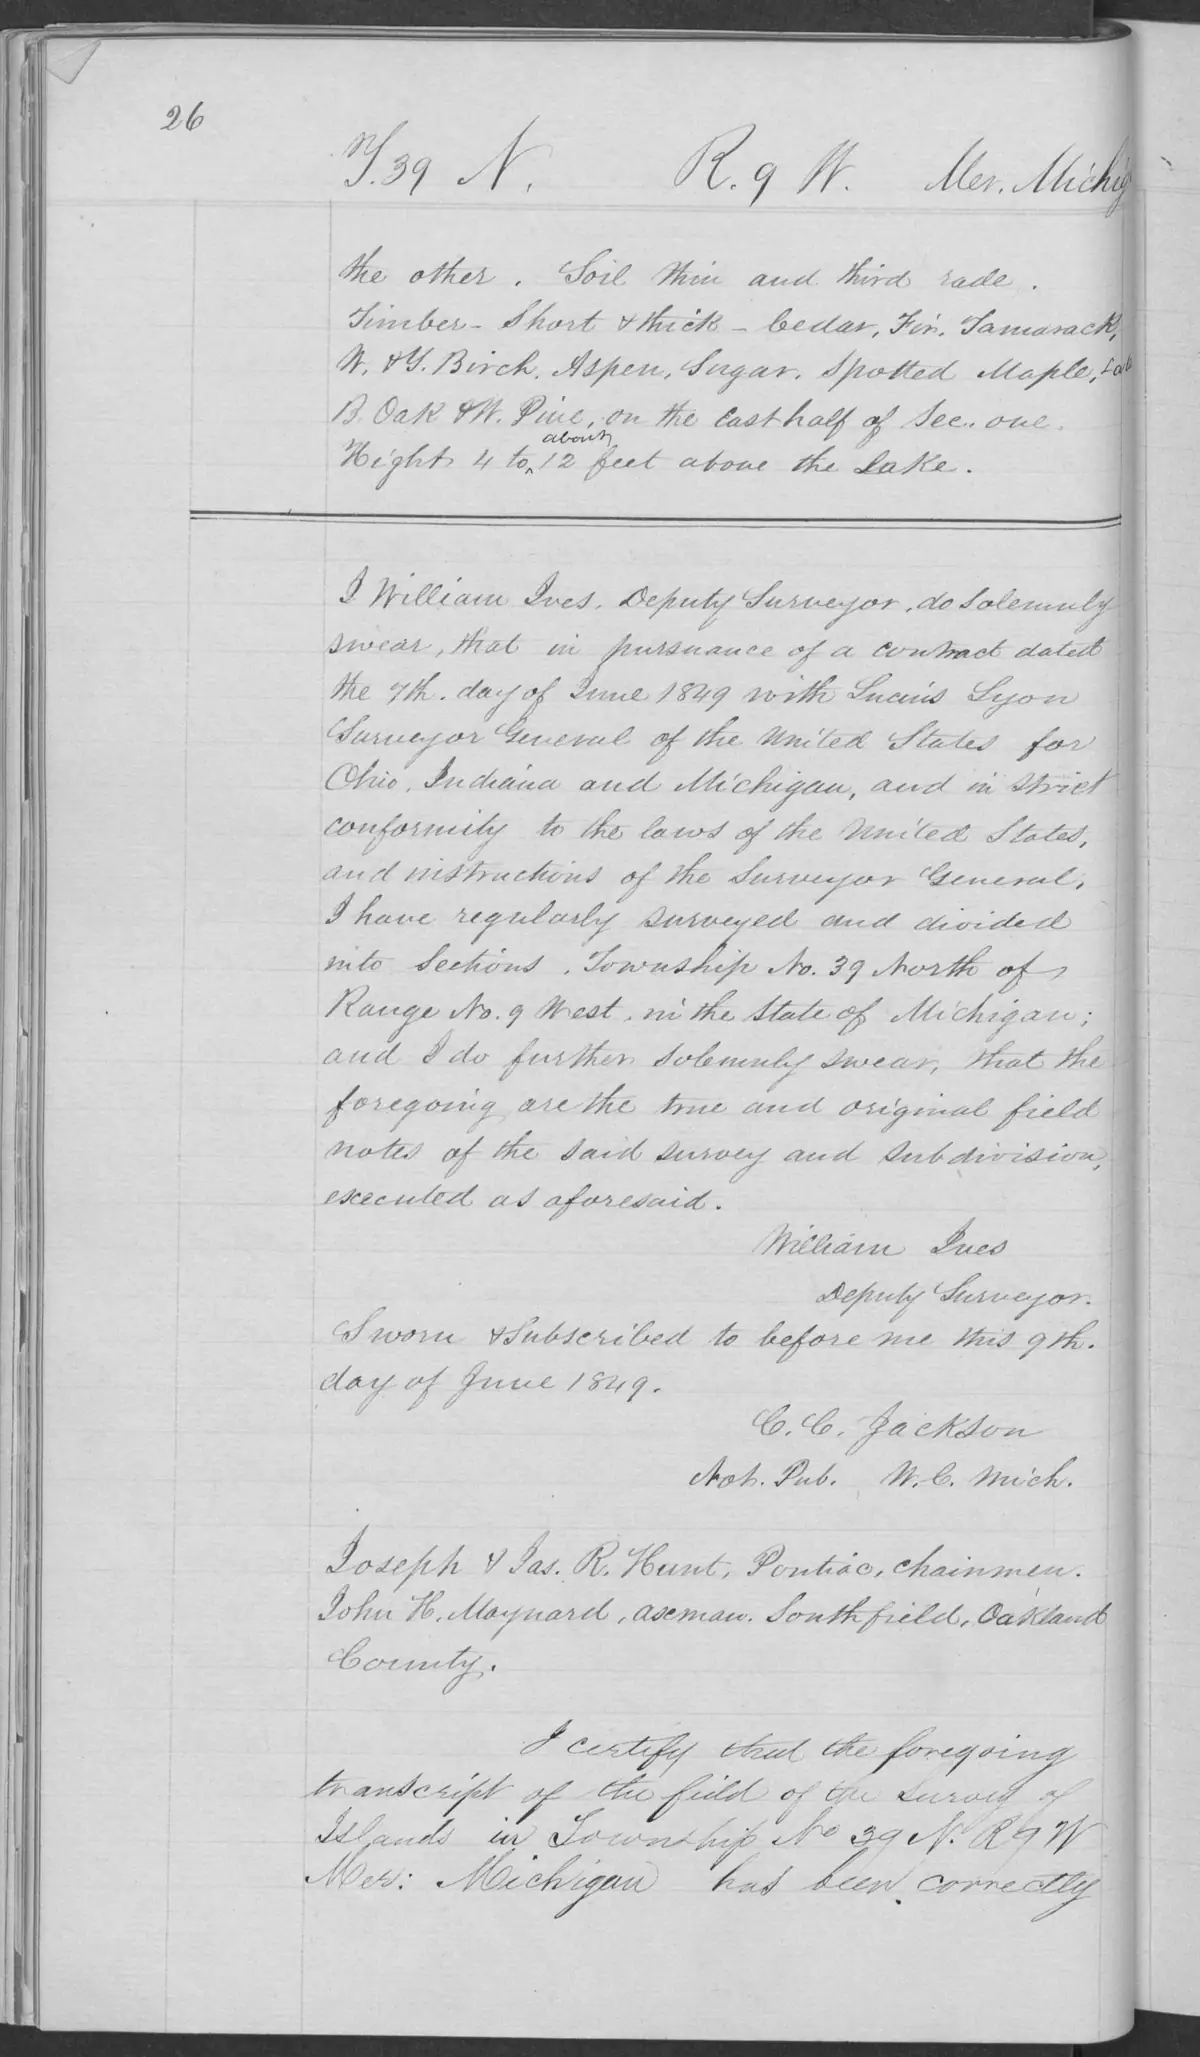 26
T. 39 N. R. 9 W. Mer. Michig
the other. Soil thin and third rade.
Timber - Short & thick - Cedar, Fir, Tamarack,
W. & Y. Birch, Aspen, Sugar, Spotted Maple,
B. Oak & W. Pine, on the east half of Sec. one.
about
Hight 4 to ^ 12 feet above the Lake.
I William Ives, Deputy Surveyor, do solemnly
swear, that in pursuance of a contract dated
the 7th. day of June 1849 with Lucius Lyon
Surveyor General of the United States for
Ohio, Indiana and Michigan, and in strict
conformity to the laws of the United States,
and instructions of the Surveyor General,
I have regularly surveyed and divided
into Sections, Township No. 39 North of
Range No. 9 West, in the State of Michigan;
and I do further solemnly swear, that the
foregoing are the true and original field
notes of the said survey and subdivision,
executed as aforesaid.
William Ives
Deputy Surveyor.
Sworn & Subscribed to before me this 9th.
day of June 1849.
C. C. Jackson
Not. Pub. W. C. Mich.
Joseph & Jas. R. Hunt, Pontiac, chainmen.
John H. Maynard, axeman. Southfield, Oakland
County.
I certify that the foregoing
transcript of the field of the survey of
Islands in Township No 39 N. R 9 W
Mer: Michigan has been correctly